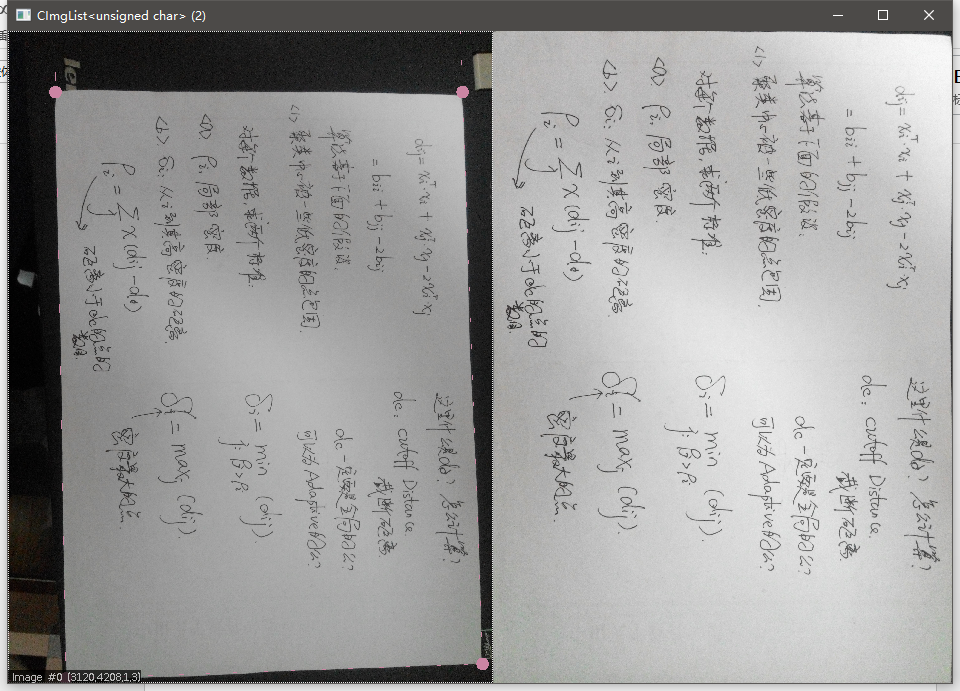 CImgList<unsigned char> (2)
dij = xiᵀxi + xjᵀxj - 2xiᵀxj
= bii + bjj - 2bij
算法基于下面的假设:
<1> 聚类中心被一些低密度的点包围.
对每个数据, 求两个
<a> ρi, 局部密度.
<b> δi: xi到其高密度的距离
ρi = Σj χ(dij - dc)
距离小于dc的点的
数目.
这里什么是dc? 怎么计算?
dc: cutoff Distance.
截断距离.
dc 一定要是全局的么?
可以为Adaptive的么?
δi = min (dij).
j: ρj > ρi
δi = max j (dij).
密度最大的点.
dij = xiᵀxi + xjᵀxj - 2xiᵀxj
= bii + bjj - 2bij
算法基于下面的假设:
<1> 聚类中心被一些低密度的点包围.
对每个数据, 求两个
<a> ρi, 局部密度.
<b> δi: xi到其高密度的距离
ρi = Σj χ(dij - dc)
距离小于dc的点的
数目.
这里什么是dc? 怎么计算?
dc: cutoff Distance.
截断距离.
dc 一定要是全局的么?
可以为Adaptive的么?
δi = min (dij).
j: ρj > ρi
δi = max j (dij).
密度最大的点.
Image #0 (3120,4208,1,3)